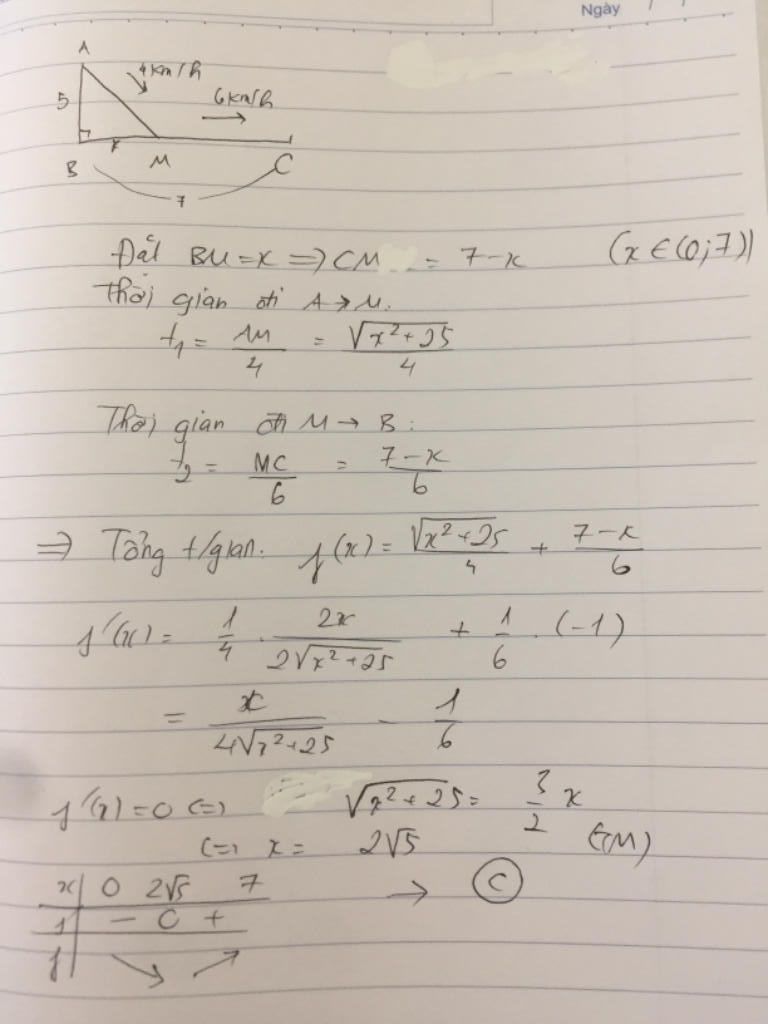 Ngày
A
4km/h
5
6km/h
B x M C
7
Đặt BM = x => CM = 7 - x (x ∈ (0; 7))
Thời gian đi A → M.
t₁ = AM/4 = √(x² + 25)/4
Thời gian đi M → B:
t₂ = MC/6 = (7 - x)/6
=> Tổng t/gian. f(x) = √(x² + 25)/4 + (7 - x)/6
f'(x) = 1/4 . 2x/(2√(x² + 25)) + 1/6 . (-1)
= x/(4√(x² + 25)) - 1/6
f'(x) = 0 (=) √(x² + 25) = 3/2 x
(=) x = 2√5 (TM)
x | 0 2√5 7 → Ⓒ
f' | - 0 +
f | ↘ ↗